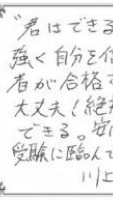 "君はできる
強く自分を信
者が合格す
大丈夫!絶対
できる。安心
受験に臨んで
川上